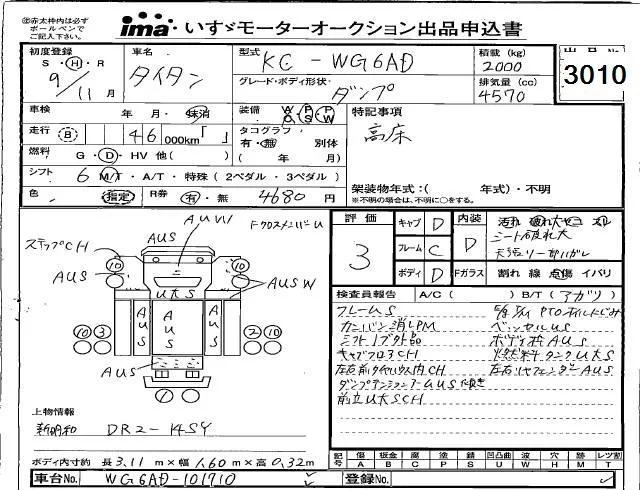 ㊟赤太枠内は必ず
ボールペンで
ご記入下さい。
ima いすゞモーターオークション出品申込書
初度登録 車名 型式 KC - WG6AD 積載 (kg) 出品No.
S・H・R タイタン 2000 3010
9/11月 グレード・ボディ形状 ダンプ 排気量 (cc)
4570
車検 年 月・抹消 装備 特記事項
走行 46 000km「 」 タコグラフ 高床
有・無 別体
燃料 G・D・HV 他( ) ( 年 月)
シフト 6 M/T・A/T・特殊 (2ペダル・3ペダル)
架装物年式:( 年式)・不明
色 (指定) R券 有・無 4680円
※不明の場合は、不明に○をする。
ステップCH AUS AUW Fクロスメンバー U
AUS U大S AUSW
10 10
AUS AUS AUS
10 3 2 10
AUS
評価 キャブ D 内装
3 フレーム C D シート破れ大
ボディ D Fガラス 割れ 線 点傷 イバリ
検査員報告 A/C ( ) B/T (アガリ)
フレームS PTOオイルにじみ
カンバン消しPM ベッセルUS
シフトノブ欠品 ボディホAUS
キャブフロア3CH 燃料タンクU大S
左右前タイヤハウス内CH 左右リヤフェンダーAUS
前立U大SCH
上物情報
新明和 DR2-14SY
記号 傷 板金 腐 塗 錆 凹凸曲 波 穴 跡 レツ割
A B C P S U W H M T
ボディ内寸約 長 3.11 m × 幅 1.60 m × 高 0.32 m
車台No. WG6AD-101710 登録No.